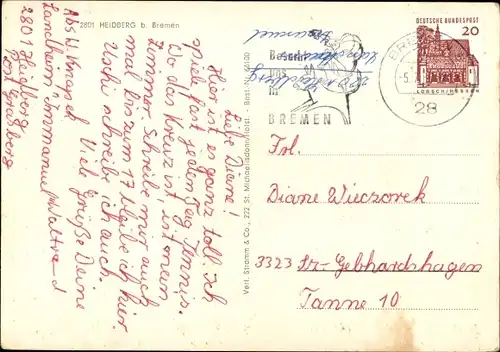 2801 HEIDBERG b. Bremen
Abs. W. Knagel
Landheim Immanuel
2801 Heidberg
Post Grasberg
Liebe Diane!
Hier ist es ganz toll. Ich
spiele fast jeden Tag Tennis.
Wo das Kreuz ist, ist mein
Zimmer. Schreibe mir auch
mal bis zum 17 bleibe ich hier.
Uschi schreibe ich auch.
Viele Grüße Deine
Waltraud
Verl. Stramm & Co., 222 St. Michaelisdonn/Holst. - Best.-Nr.
DEUTSCHE BUNDESPOST
20
LORSCH/HESSEN
BRE
-5.
28
Besucht
uns
in
BREMEN
Frl.
Diane Wieczorek
3323 Sz-Gebhardshagen
Tanne 10